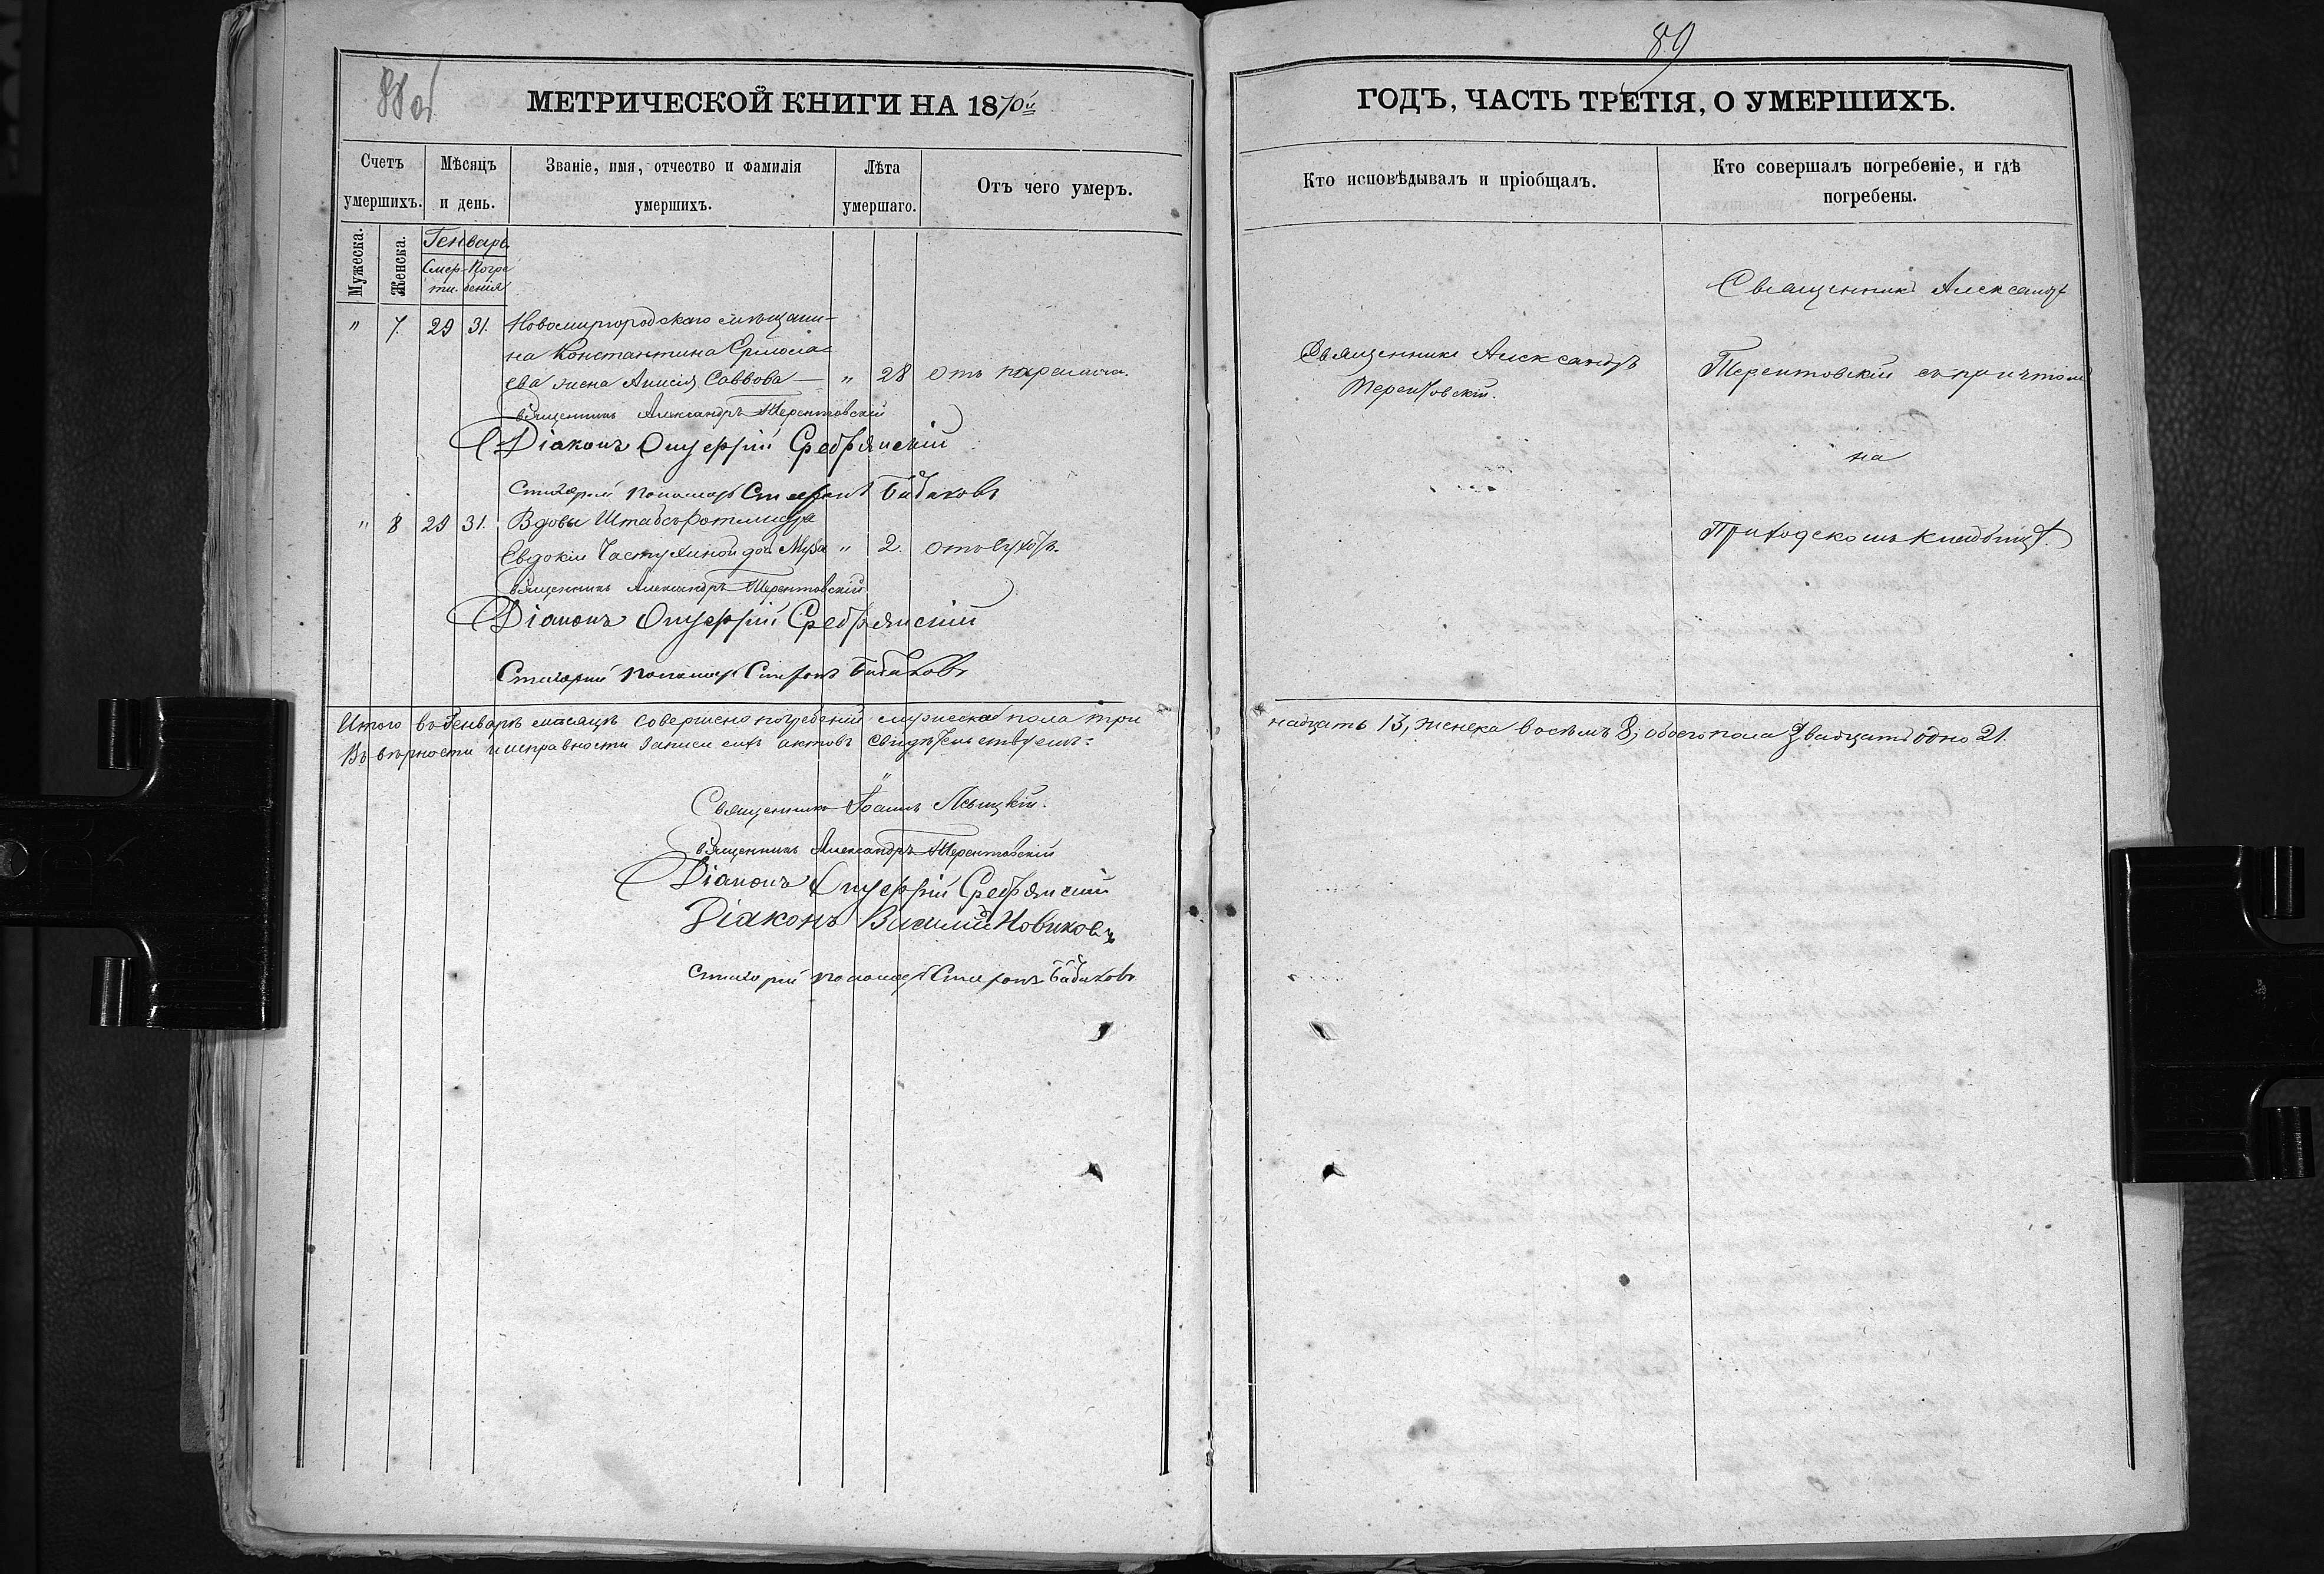 88 об
МЕТРИЧЕСКОЙ КНИГИ НА 1870й
Счетъ умершихъ.
Мѣсяцъ и день.
Званіе, имя, отчество и фамилія умершихъ.
Лѣта умершаго.
Отъ чего умеръ.
Мужеска.
Женска.
Генварь
Смерти.
Погребенія
" 7. 29 31. Новомиргородскаго мѣщани-
на Константина Ермола-
ева жена Анисія Саввова — " 28 Отъ паралича.
Священникъ Александръ Терентовскій
Діаконъ Онуфрій Сребрянскій
Стихарный пономарь
" 8 29 31. Вдовы Штабсъ-ротмистра
Евдокіи дочь " 2. отъ
Священникъ Александръ Терентовскій
Діаконъ Онуфрій Сребрянскій
Стихарный пономарь
Итого въ Генварѣ мѣсяцѣ совершено погребеній мужеска пола три
Въ вѣрности и исправности записи сихъ актовъ свидѣтельствуемъ:
Священникъ Іоаннъ
Священникъ Александръ Терентовскій
Діаконъ Онуфрій Сребрянскій
Діаконъ Василій Новиковъ
Стихарный пономарь
89
ГОДЪ, ЧАСТЬ ТРЕТІЯ, О УМЕРШИХЪ.
Кто исповѣдывалъ и пріобщалъ.
Кто совершалъ погребеніе, и гдѣ
погребены.
Священникъ Александръ
Священникъ Александръ
Терентовскій.
Терентовскій съ причтомъ
на
Приходскомъ кладбищѣ.
надцать 13, женска восемь 8, обоего пола двадцать одно 21.